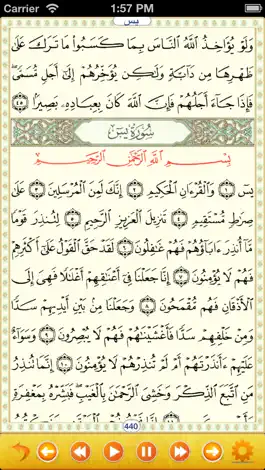 Carrier 1:57 PM
يس
وَلَوْ يُؤَاخِذُ ٱللَّهُ ٱلنَّاسَ بِمَا كَسَبُوا۟ مَا تَرَكَ عَلَىٰ
ظَهْرِهَا مِن دَآبَّةٍ وَلَٰكِن يُؤَخِّرُهُمْ إِلَىٰٓ أَجَلٍ مُّسَمًّى ۖ
فَإِذَا جَآءَ أَجَلُهُمْ فَإِنَّ ٱللَّهَ كَانَ بِعِبَادِهِۦ بَصِيرًۢا ٤٥
سُورَةُ يسٓ
بِسْمِ ٱللَّهِ ٱلرَّحْمَٰنِ ٱلرَّحِيمِ
يسٓ ١ وَٱلْقُرْءَانِ ٱلْحَكِيمِ ٢ إِنَّكَ لَمِنَ ٱلْمُرْسَلِينَ ٣ عَلَىٰ
صِرَٰطٍ مُّسْتَقِيمٍ ٤ تَنزِيلَ ٱلْعَزِيزِ ٱلرَّحِيمِ ٥ لِتُنذِرَ قَوْمًا
مَّآ أُنذِرَ ءَابَآؤُهُمْ فَهُمْ غَٰفِلُونَ ٦ لَقَدْ حَقَّ ٱلْقَوْلُ عَلَىٰٓ أَكْثَرِهِمْ
فَهُمْ لَا يُؤْمِنُونَ ٧ إِنَّا جَعَلْنَا فِىٓ أَعْنَٰقِهِمْ أَغْلَٰلًا فَهِىَ إِلَى
ٱلْأَذْقَانِ فَهُم مُّقْمَحُونَ ٨ وَجَعَلْنَا مِنۢ بَيْنِ أَيْدِيهِمْ سَدًّا
وَمِنْ خَلْفِهِمْ سَدًّا فَأَغْشَيْنَٰهُمْ فَهُمْ لَا يُبْصِرُونَ ٩ وَسَوَآءٌ
عَلَيْهِمْ ءَأَنذَرْتَهُمْ أَمْ لَمْ تُنذِرْهُمْ لَا يُؤْمِنُونَ ١٠ إِنَّمَا تُنذِرُ
مَنِ ٱتَّبَعَ ٱلذِّكْرَ وَخَشِىَ ٱلرَّحْمَٰنَ بِٱلْغَيْبِ ۖ فَبَشِّرْهُ بِمَغْفِرَةٍ
440